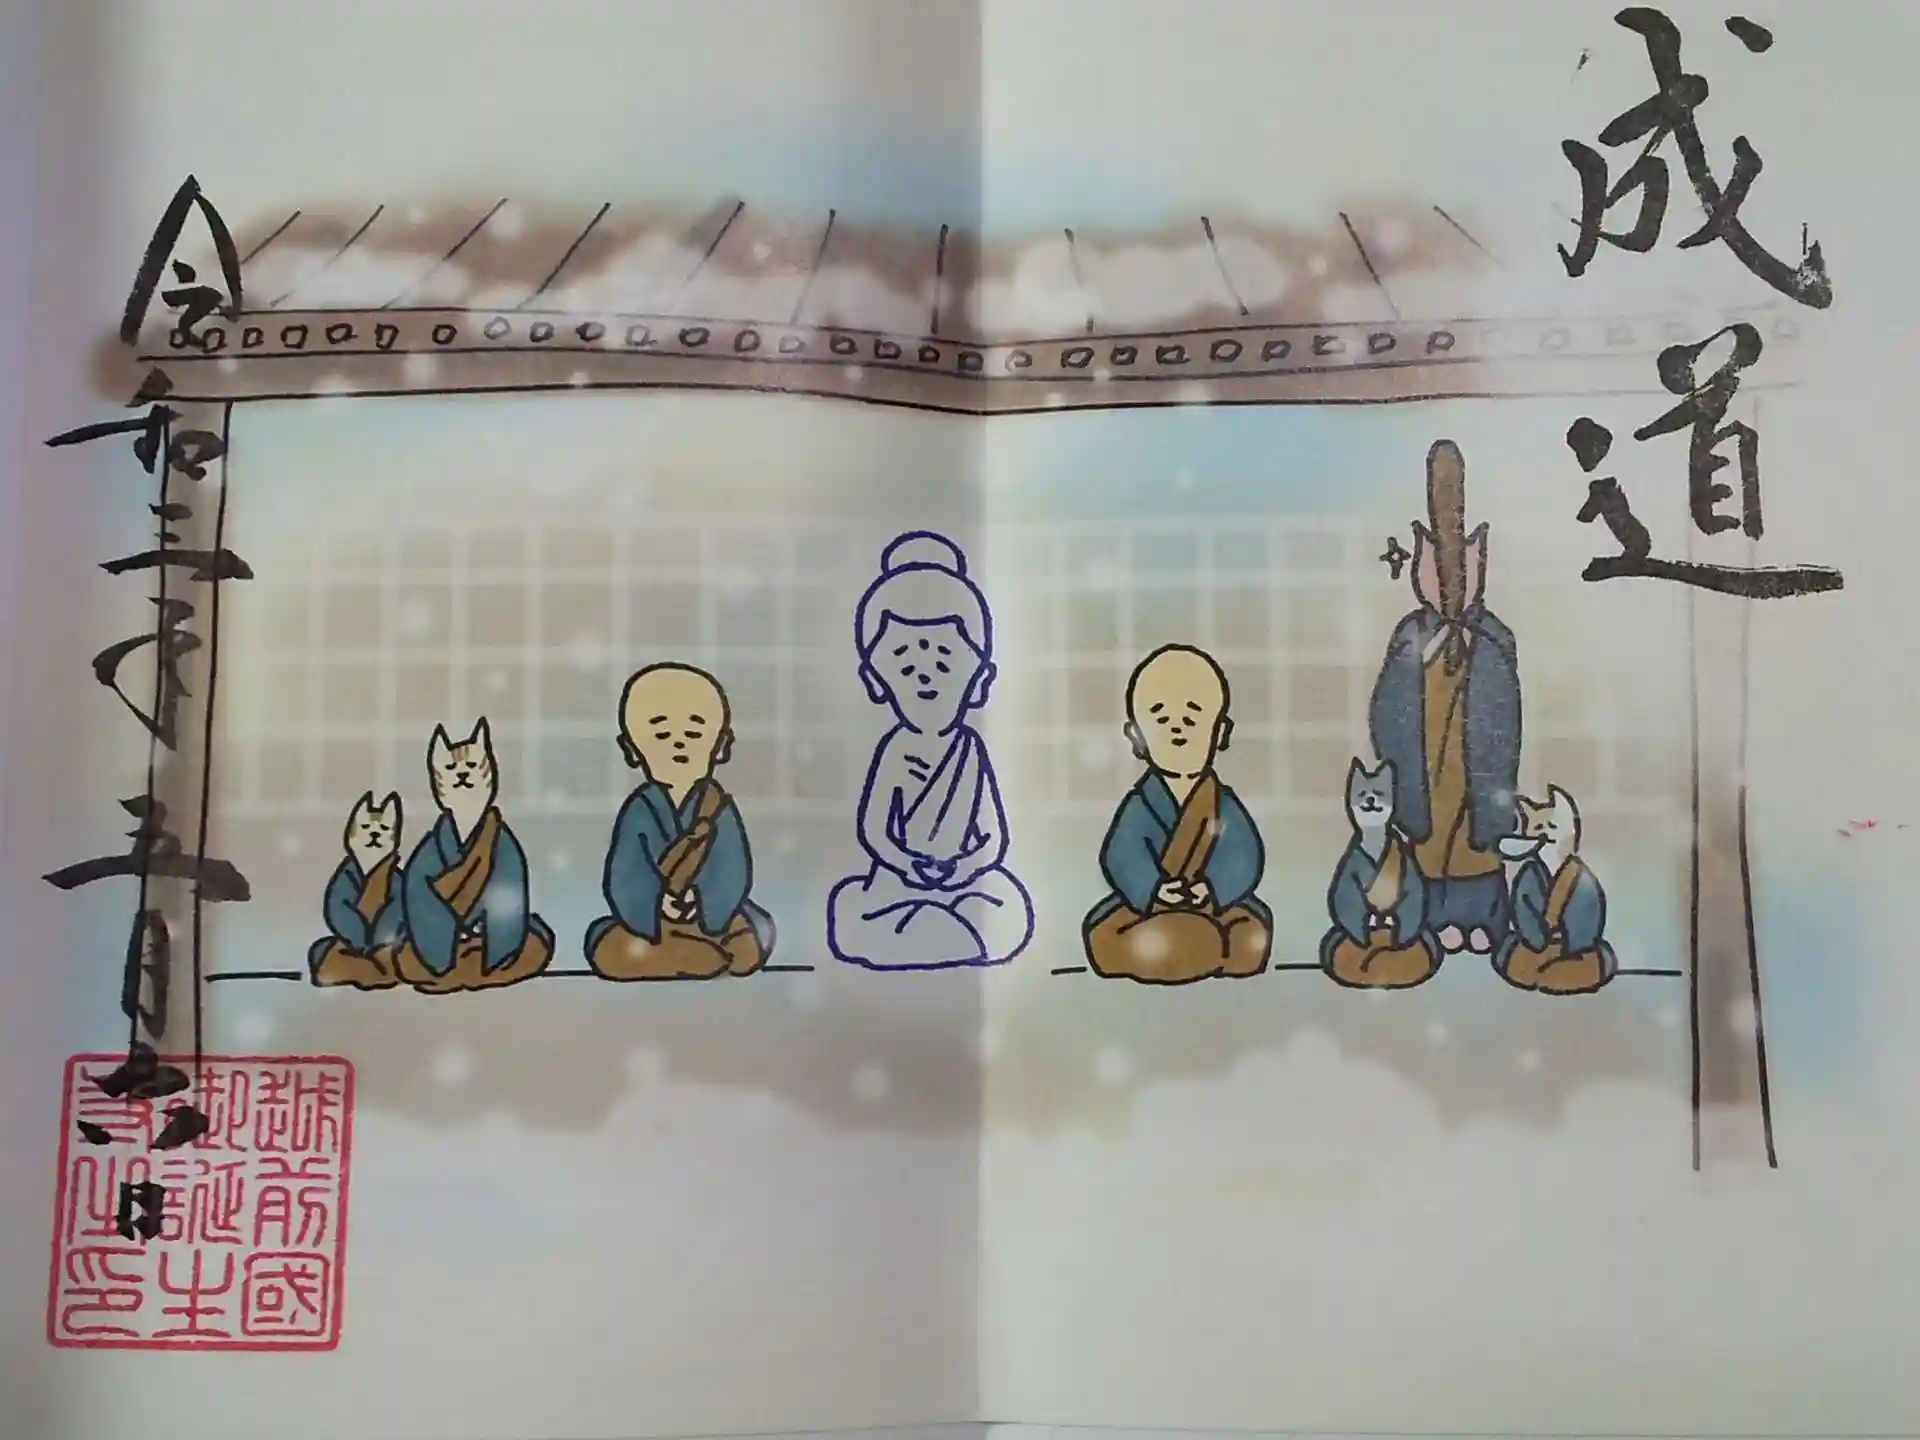 成道
令和三年五月六日
越前國
御誕生
寺之印